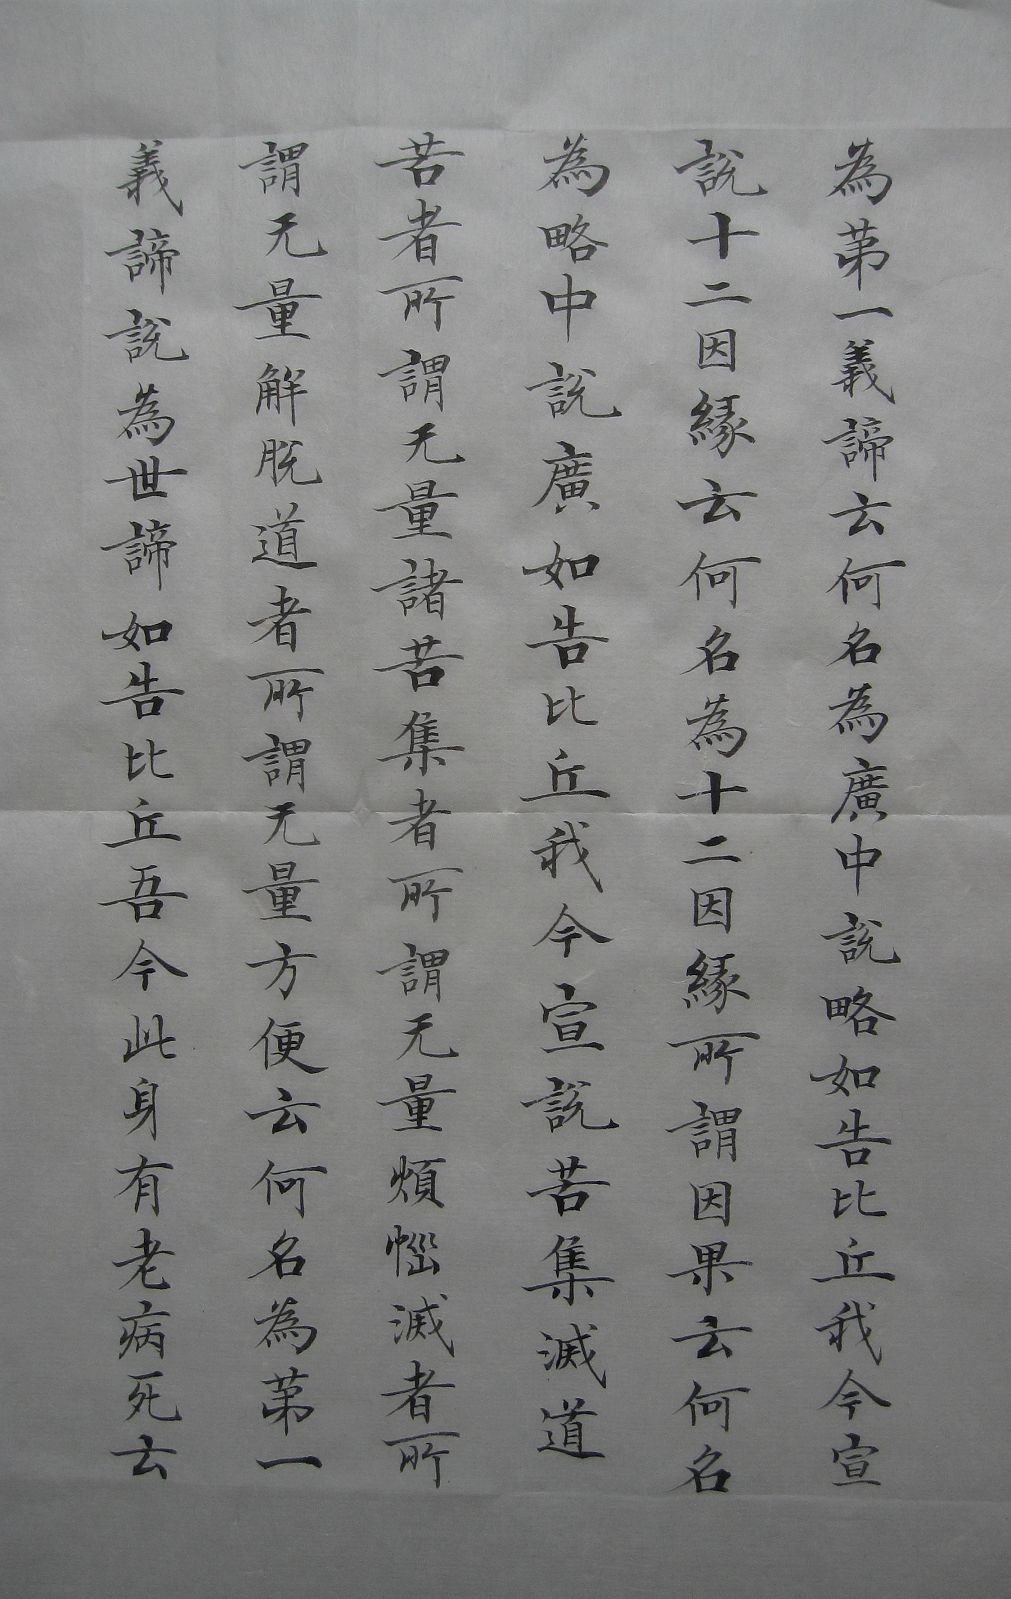 為苐一義諦云何名為廣中說略如告比丘我今宣
說十二因緣云何名為十二因緣所謂因果云何名
為略中說廣如告比丘我今宣說苦集滅道
苦者所謂无量諸苦集者所謂无量煩惱滅者所
謂无量解脫道者所謂无量方便云何名為苐一
義諦說為世諦如告比丘吾今此身有老病死云